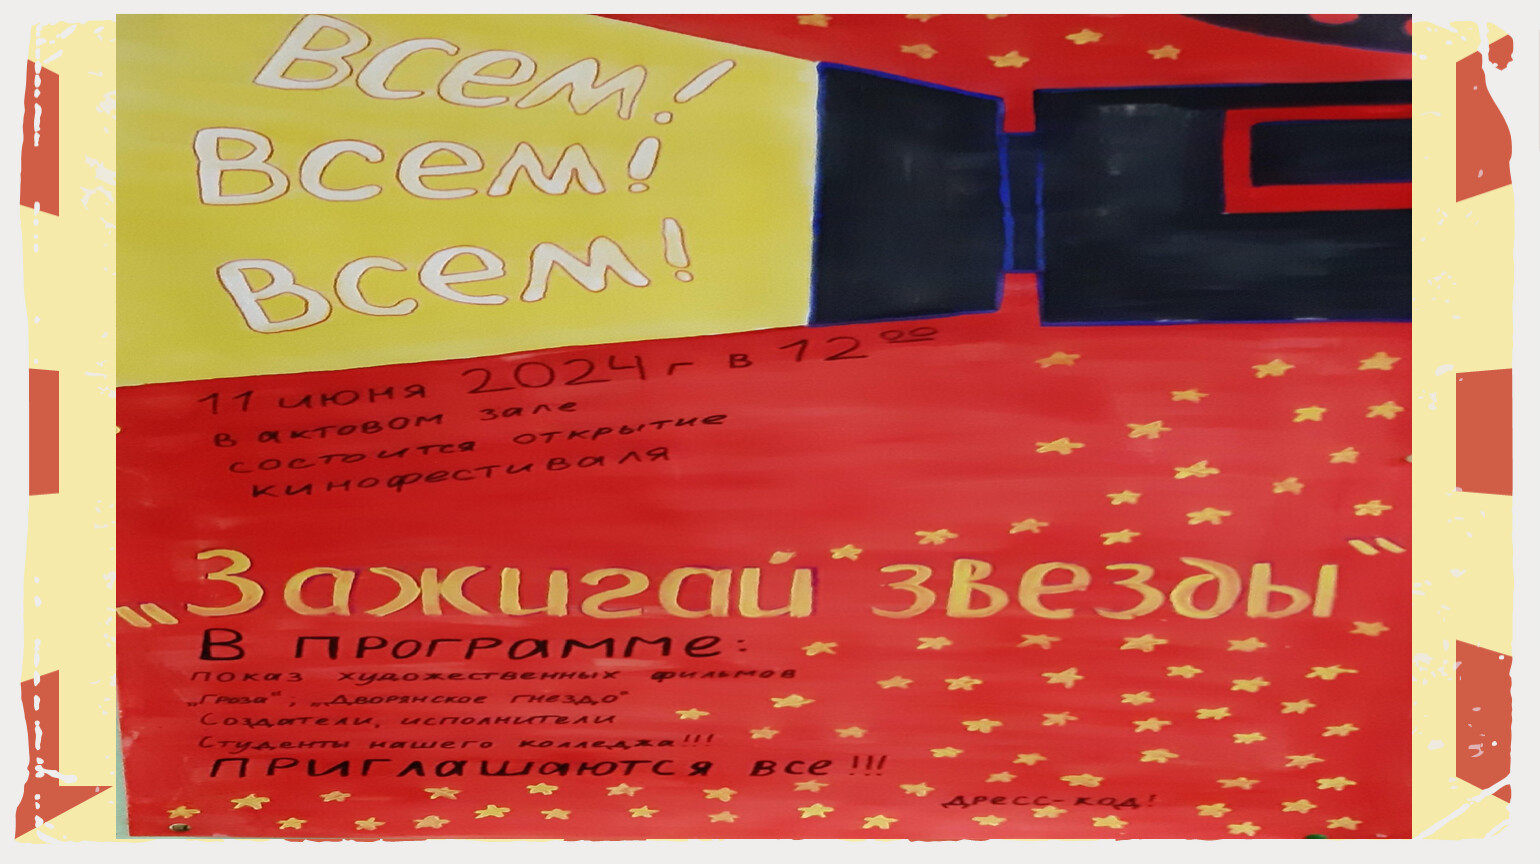 Всем!
Всем!
Всем!
11 июня 2024 г в 12⁰⁰
в актовом зале
состоится открытие
кинофестиваля
„Зажигай звезды"
В программе:
показ художественных фильмов
„Гроза"; „Дворянское гнездо"
Создатели, исполнители
Студенты нашего колледжа!!!
Приглашаются все!!!
дресс-код!